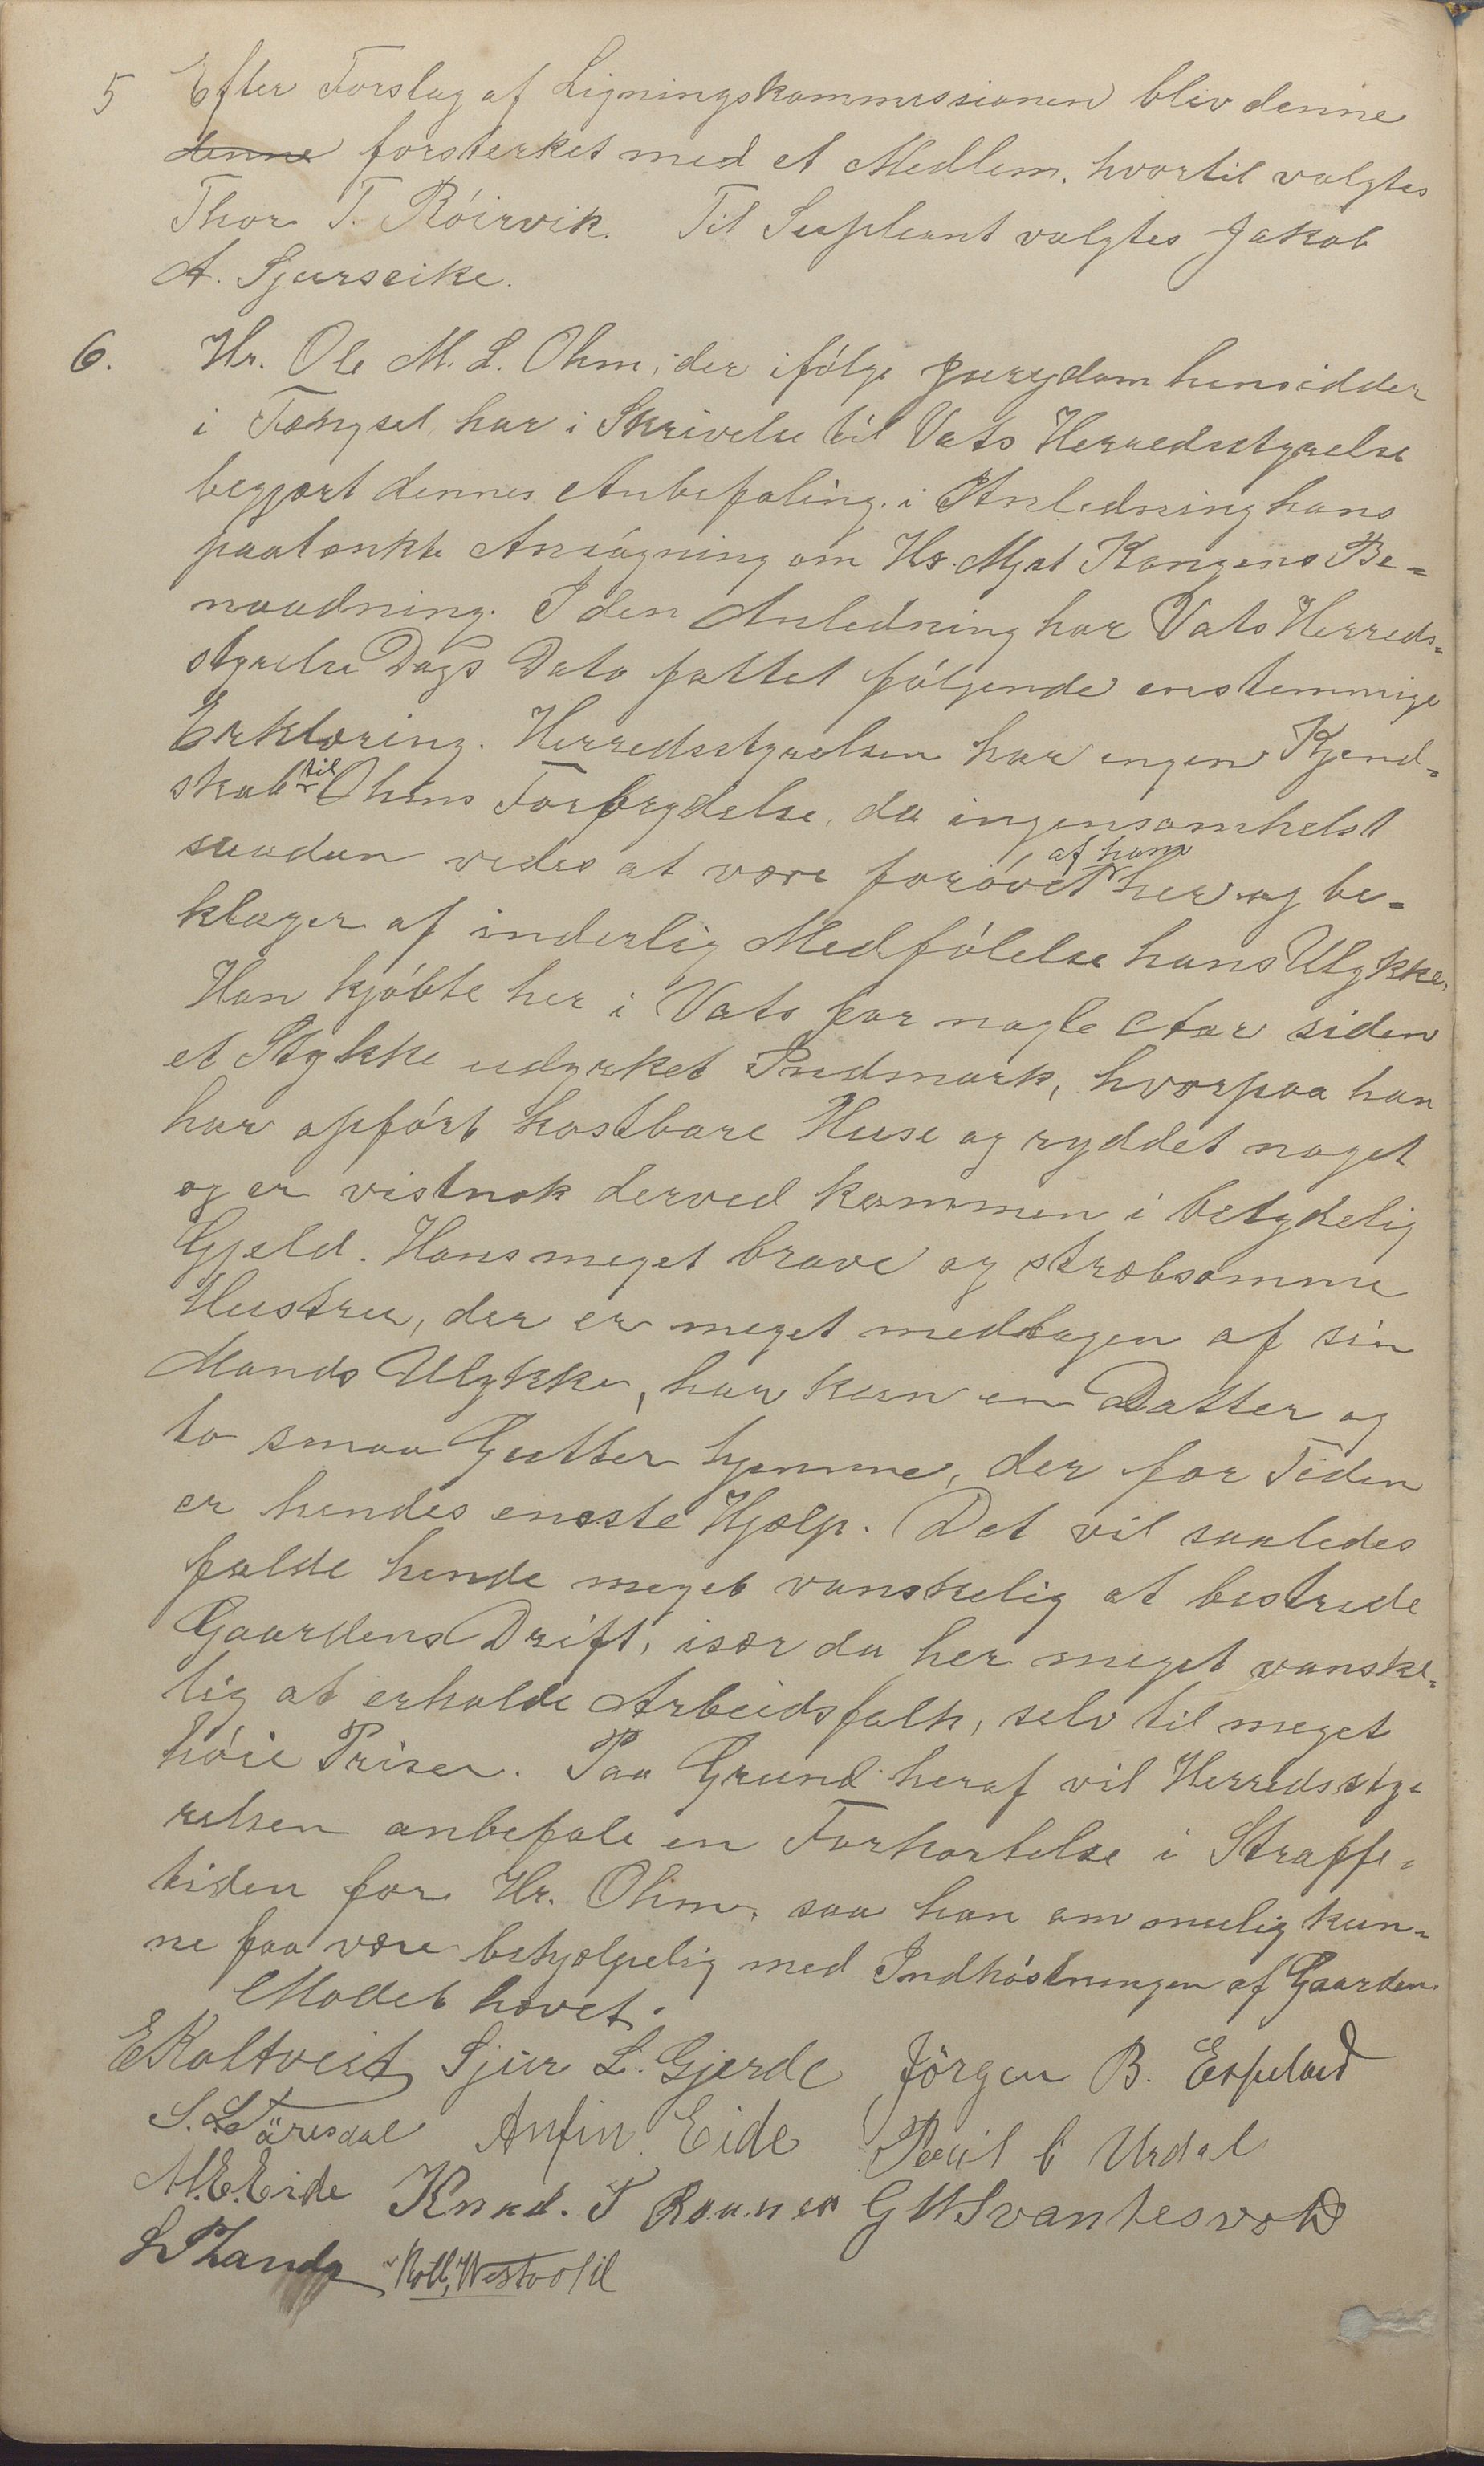 5 Efter Forslag af Ligningskommissionen blev denne
denne forsterket med et Medlem, hvortil valgtes
Thor T. Róirvik. Til Supleant valgtes Jakob
A. Sjurseike.
6. Hr. Ole M. L. Ohm, der ifólge Jurydom hensidder
i Fængsel, har i Skrivelse til Vats Herredsstyrelse
begjært dennes Anbefaling i Anledning hans
paatænkte Ansógning om Hs. Mjst Kongens Be=
naadning. I den Anledning har Vats Herreds=
styrelse Dags Dato fattet fólgende enstemmige
Erklæring. Herredsstyrelsen har ingen Kjend=
skab til Ohms Forbrydelse, da ingensomhelst
saadan vides at være foróvet af ham her og be=
klager af inderlig Medfólelse hans Ulykke.
Han kjóbte her i Vats for nogle Aar siden
et Stykke udyrket Indmark, hvorpaa han
har opfórt kostbare Huse og ryddet noget
og er vistnok derved kommen i betydelig
Gjæld. Hans meget brave og stræbsomme
Hustru, der er meget medtagen af sin
Mands Ulykke, har kun en Datter og
to smaa Gutter hjemme, der for Tiden
er hendes eneste Hjælp. Det vil saaledes
falde hende meget vanskelig at bestride
Gaardens Drift, især da her meget vanske=
lig at erholde Arbeidsfolk, selv til meget
hóie Priser. Paa Grund heraf vil Herredssty=
relsen anbefale en Forkortelse i Straffe=
tiden for Hr. Ohm, saa han om mulig kun=
ne faa være behjælpelig med Indhóstningen af Gaarden.
Mødet hævet.
E Koltveit Sjur L. Gjerde Jörgen B. Espeland
S. L. Aarsdal Anfin Eide Poul C Urdal
M. E. Eide Knud. T Raunes G W Svantesvold
Koll, Westvold